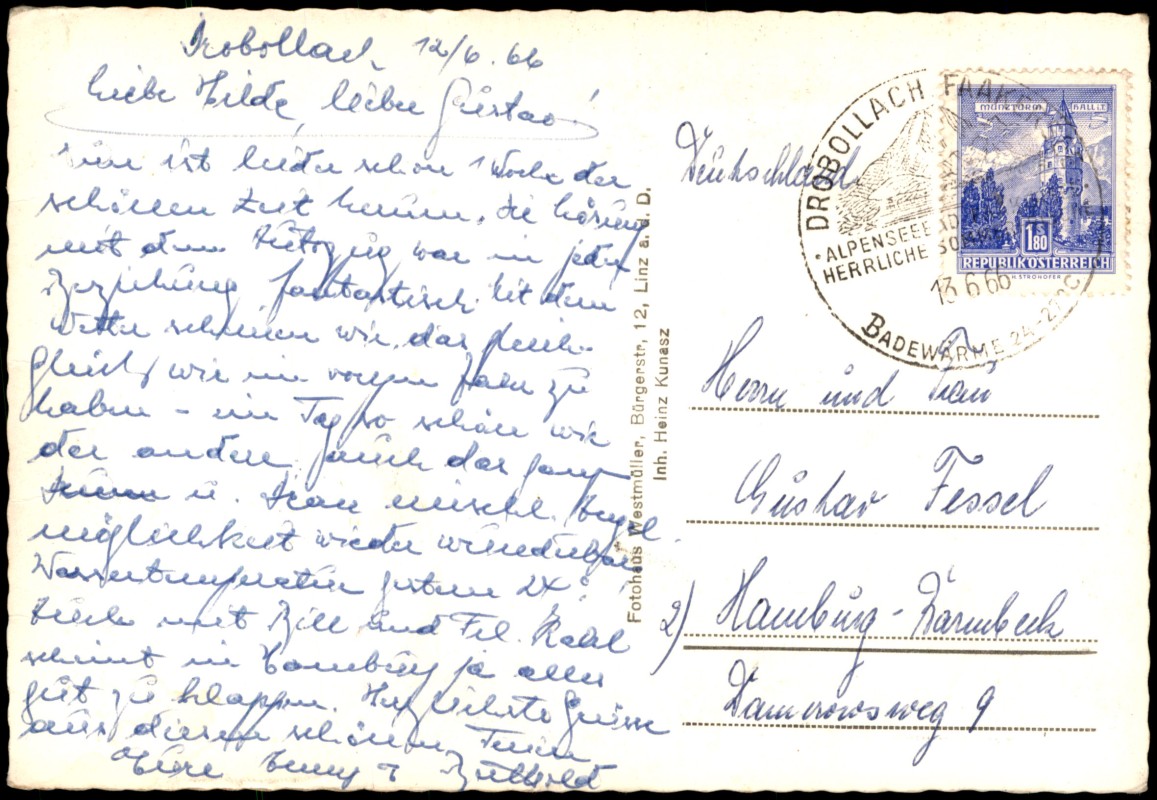 Drobollach, 12/6.66
Liebe Hilde, lieber Gustav!
Nun ist leider schon 1 Woche der
schönen Zeit herum, die Lösung
mit dem Autozug war in jeder
Beziehung fantastisch. Mit dem
Wetter scheinen wir das gleiche
Glück wie im vorigen Jahr zu
haben – ein Tag so schön wie
der andere, auch das ganze
u.
möglichkeit wieder wunderbar
Wassertemperatur gestern 24°!
Auch mit Bill und Frl. Kahl
scheint in Hamburg ja alles
gut zu klappen. Herzlichste Grüsse
aus diesem schönen Ferien
Eure
DROBOLLACH FAAKER
ALPENSEEBAD
HERRLICHE
13.6.66
BADEWÄRME 24-27°C
MÜNZTURM HALL i.T.
S 1.80
REPUBLIK ÖSTERREICH
H. STROHOFER
Deutschland
Fotohaus Westmüller, Bürgerstr, 12, Linz a. d. D.
Inh. Heinz Kunasz
Herrn und Frau
Gustav Fessel
2) Hamburg-Barmbeck
Damerowsweg 9